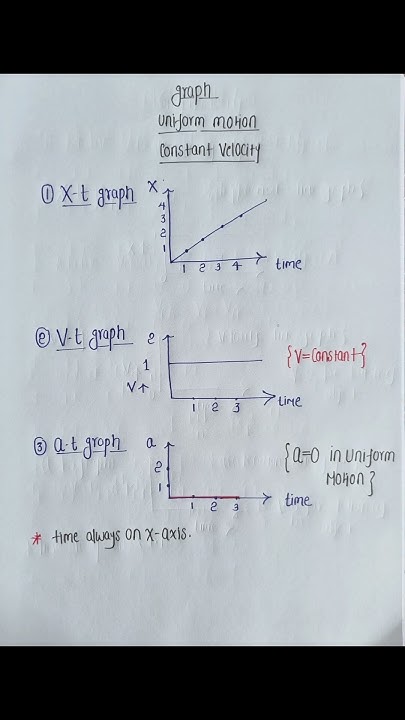 graph
uniform motion
constant velocity
① X-t graph
X
4
3
2
1
1 2 3 4
time
② V-t graph
2
1
V↑
1 2 3
time
{V=constant}
③ a-t graph
a
2
1
1 2 3
time
{a=0 in uniform
motion}
* time always on x-axis.